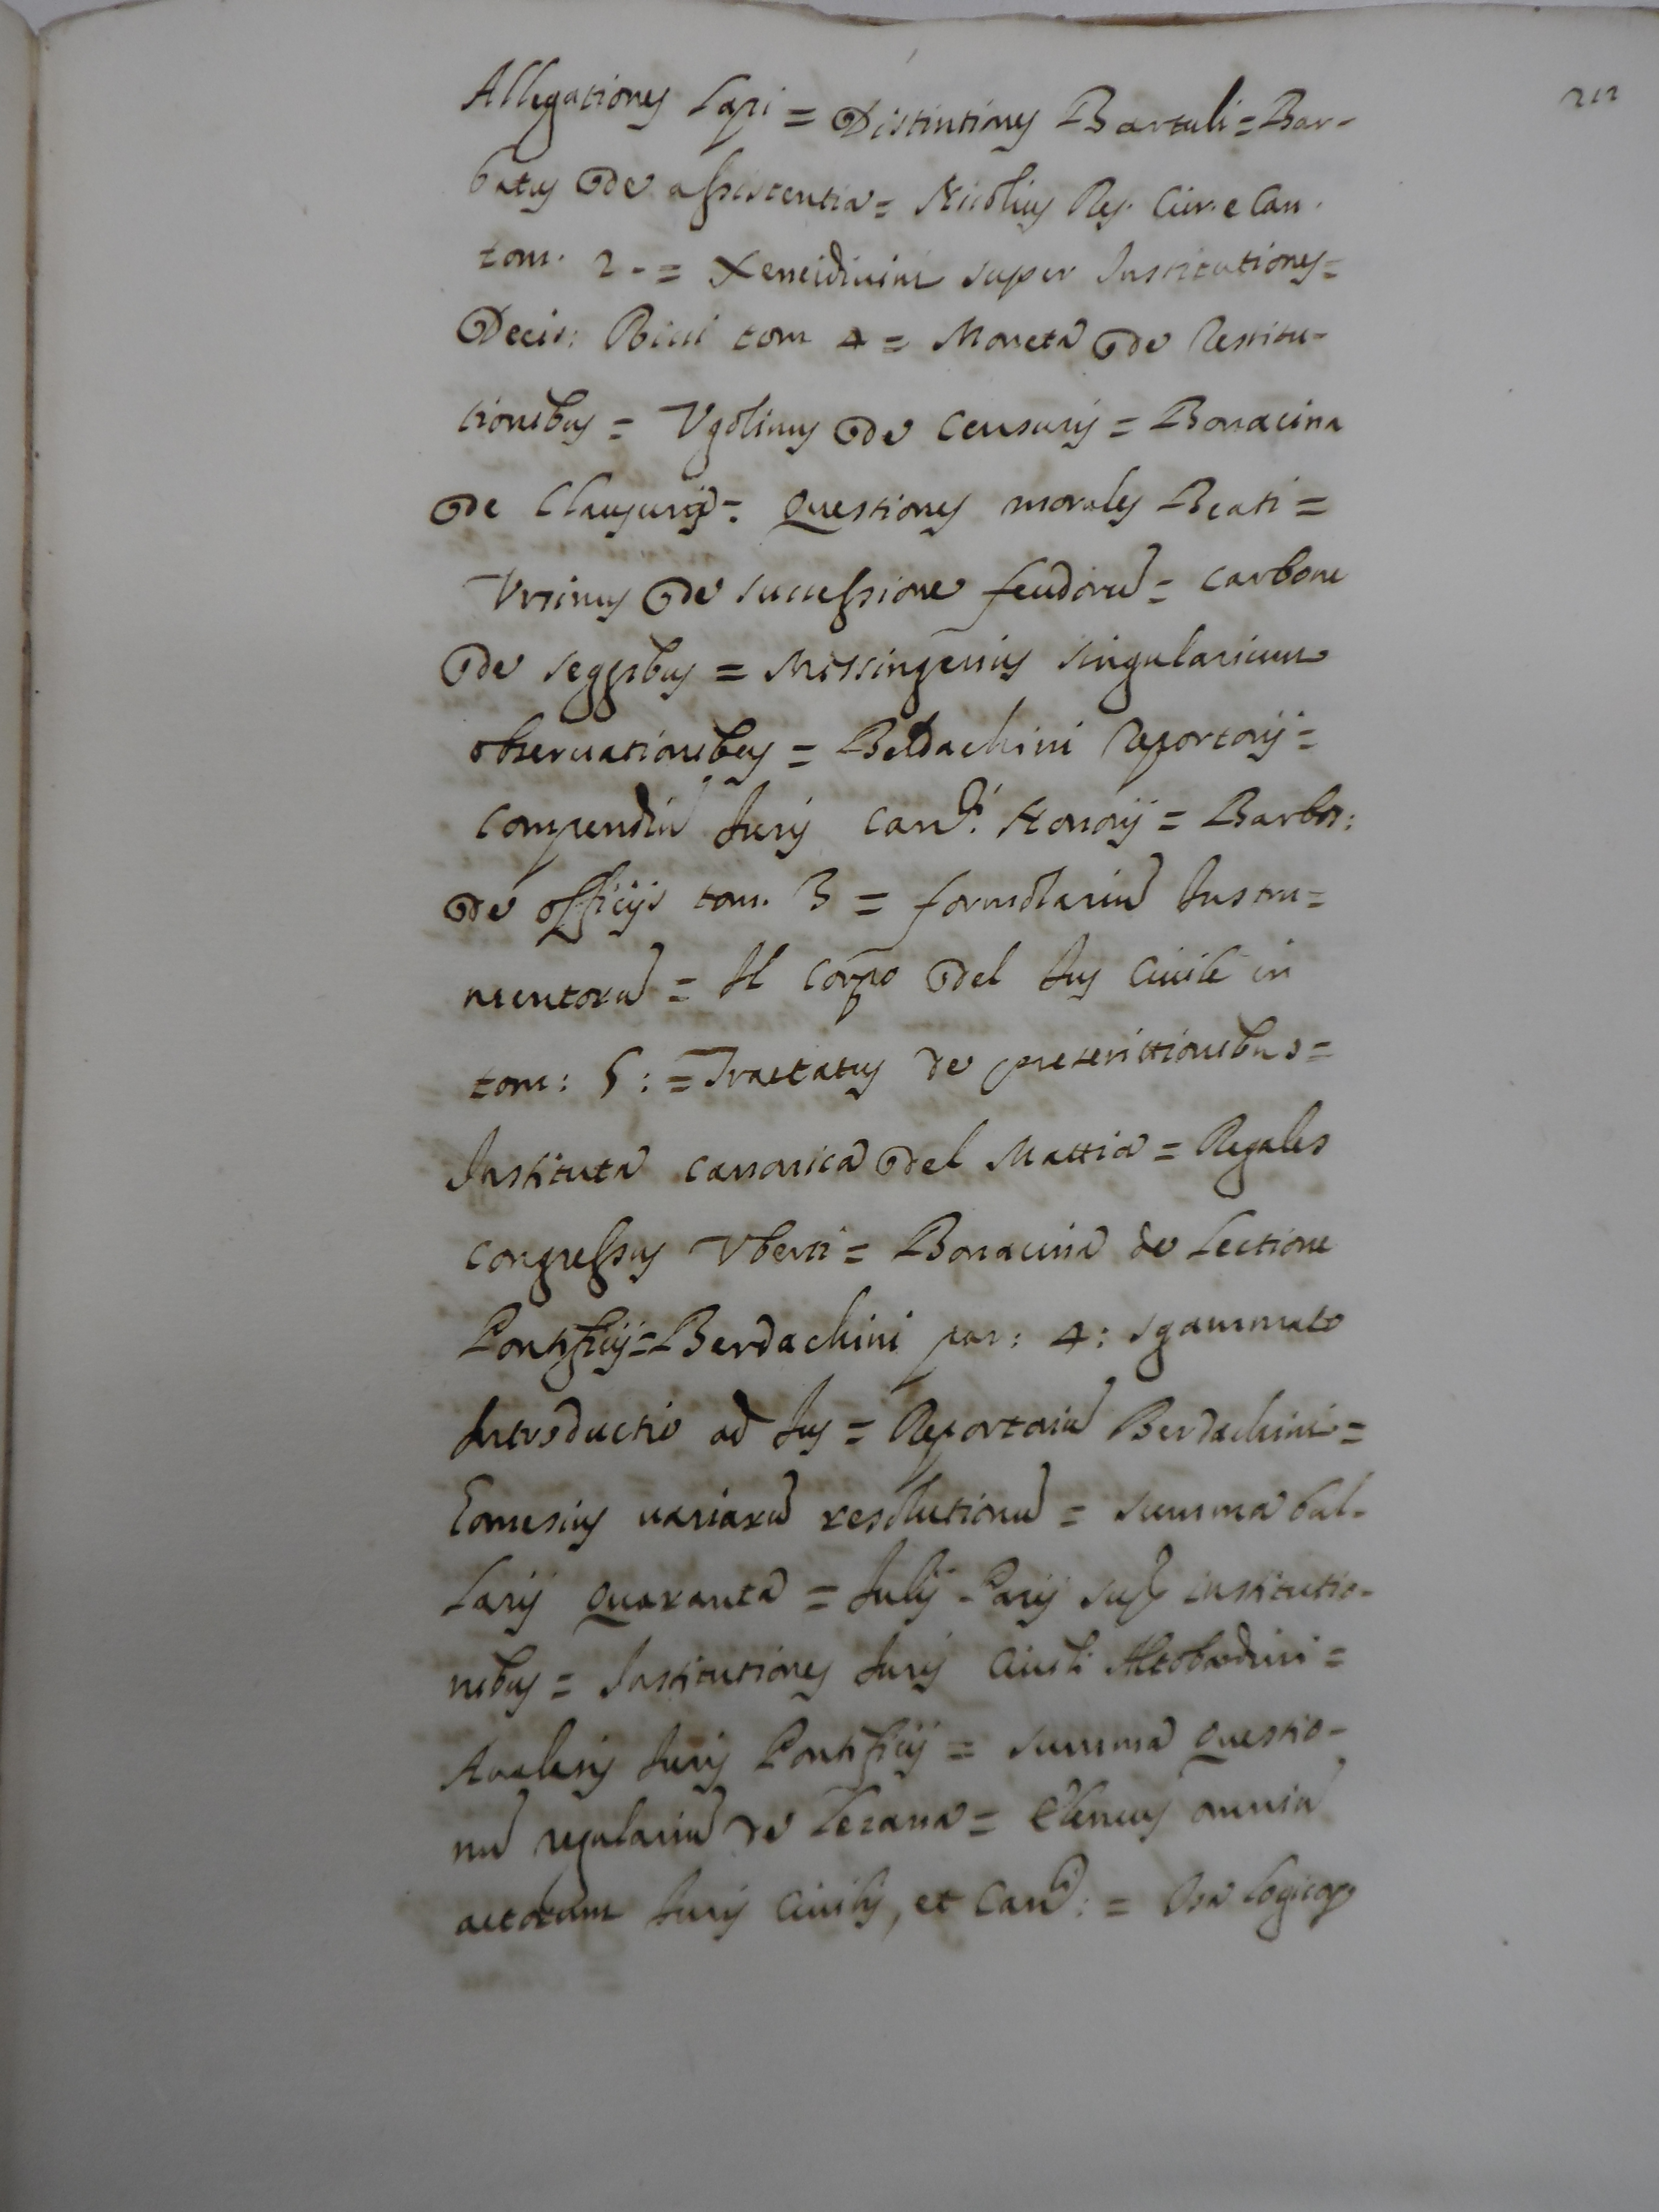 212
Allegationes Lapi = Distintiones Bartuli = Bar-
batus de assistentia = Nicolius Res. Civ. e Can.
tom. 2. = Xeneidivini super Institutiones =
Decis: Ricii tom 4 = Moneta de Restitu-
tionibus = Vgolinus de Censuris = Bonacina
de Clausuris = Questiones morales Beati =
Vrsinus de successione feudorũ = Carbone
de leggibus = Messingerius singularium
observationibus = Beldachini Reportorij =
Compendiũ Juris Can.ci Honorij = Barbos:
de officijs tom. 3 = formolariũ Instru=
mentorũ = Il Corpo del Jus Civile in
tom: 5: = Tractatus de preterittionibus =
Instituta canonica del Mattia = Regales
congressus Vberti = Bonacina de Lectione
Pontificij = Berdachini par: 4: sgammato
Introductio ad Jus = Reportoriũ Berdachini =
Eomesius variarũ resolutionũ = summa bul-
larij Quaranta = Julij Pacij sup institutio-
nibus = Institutiones Juris Civili Altobardini =
Analesis Juris Pontificij = summa questio-
nũ regulariũ de Lezana = Elencus omniũ
actorum Juris Civilis, et Can: = Osa logicap